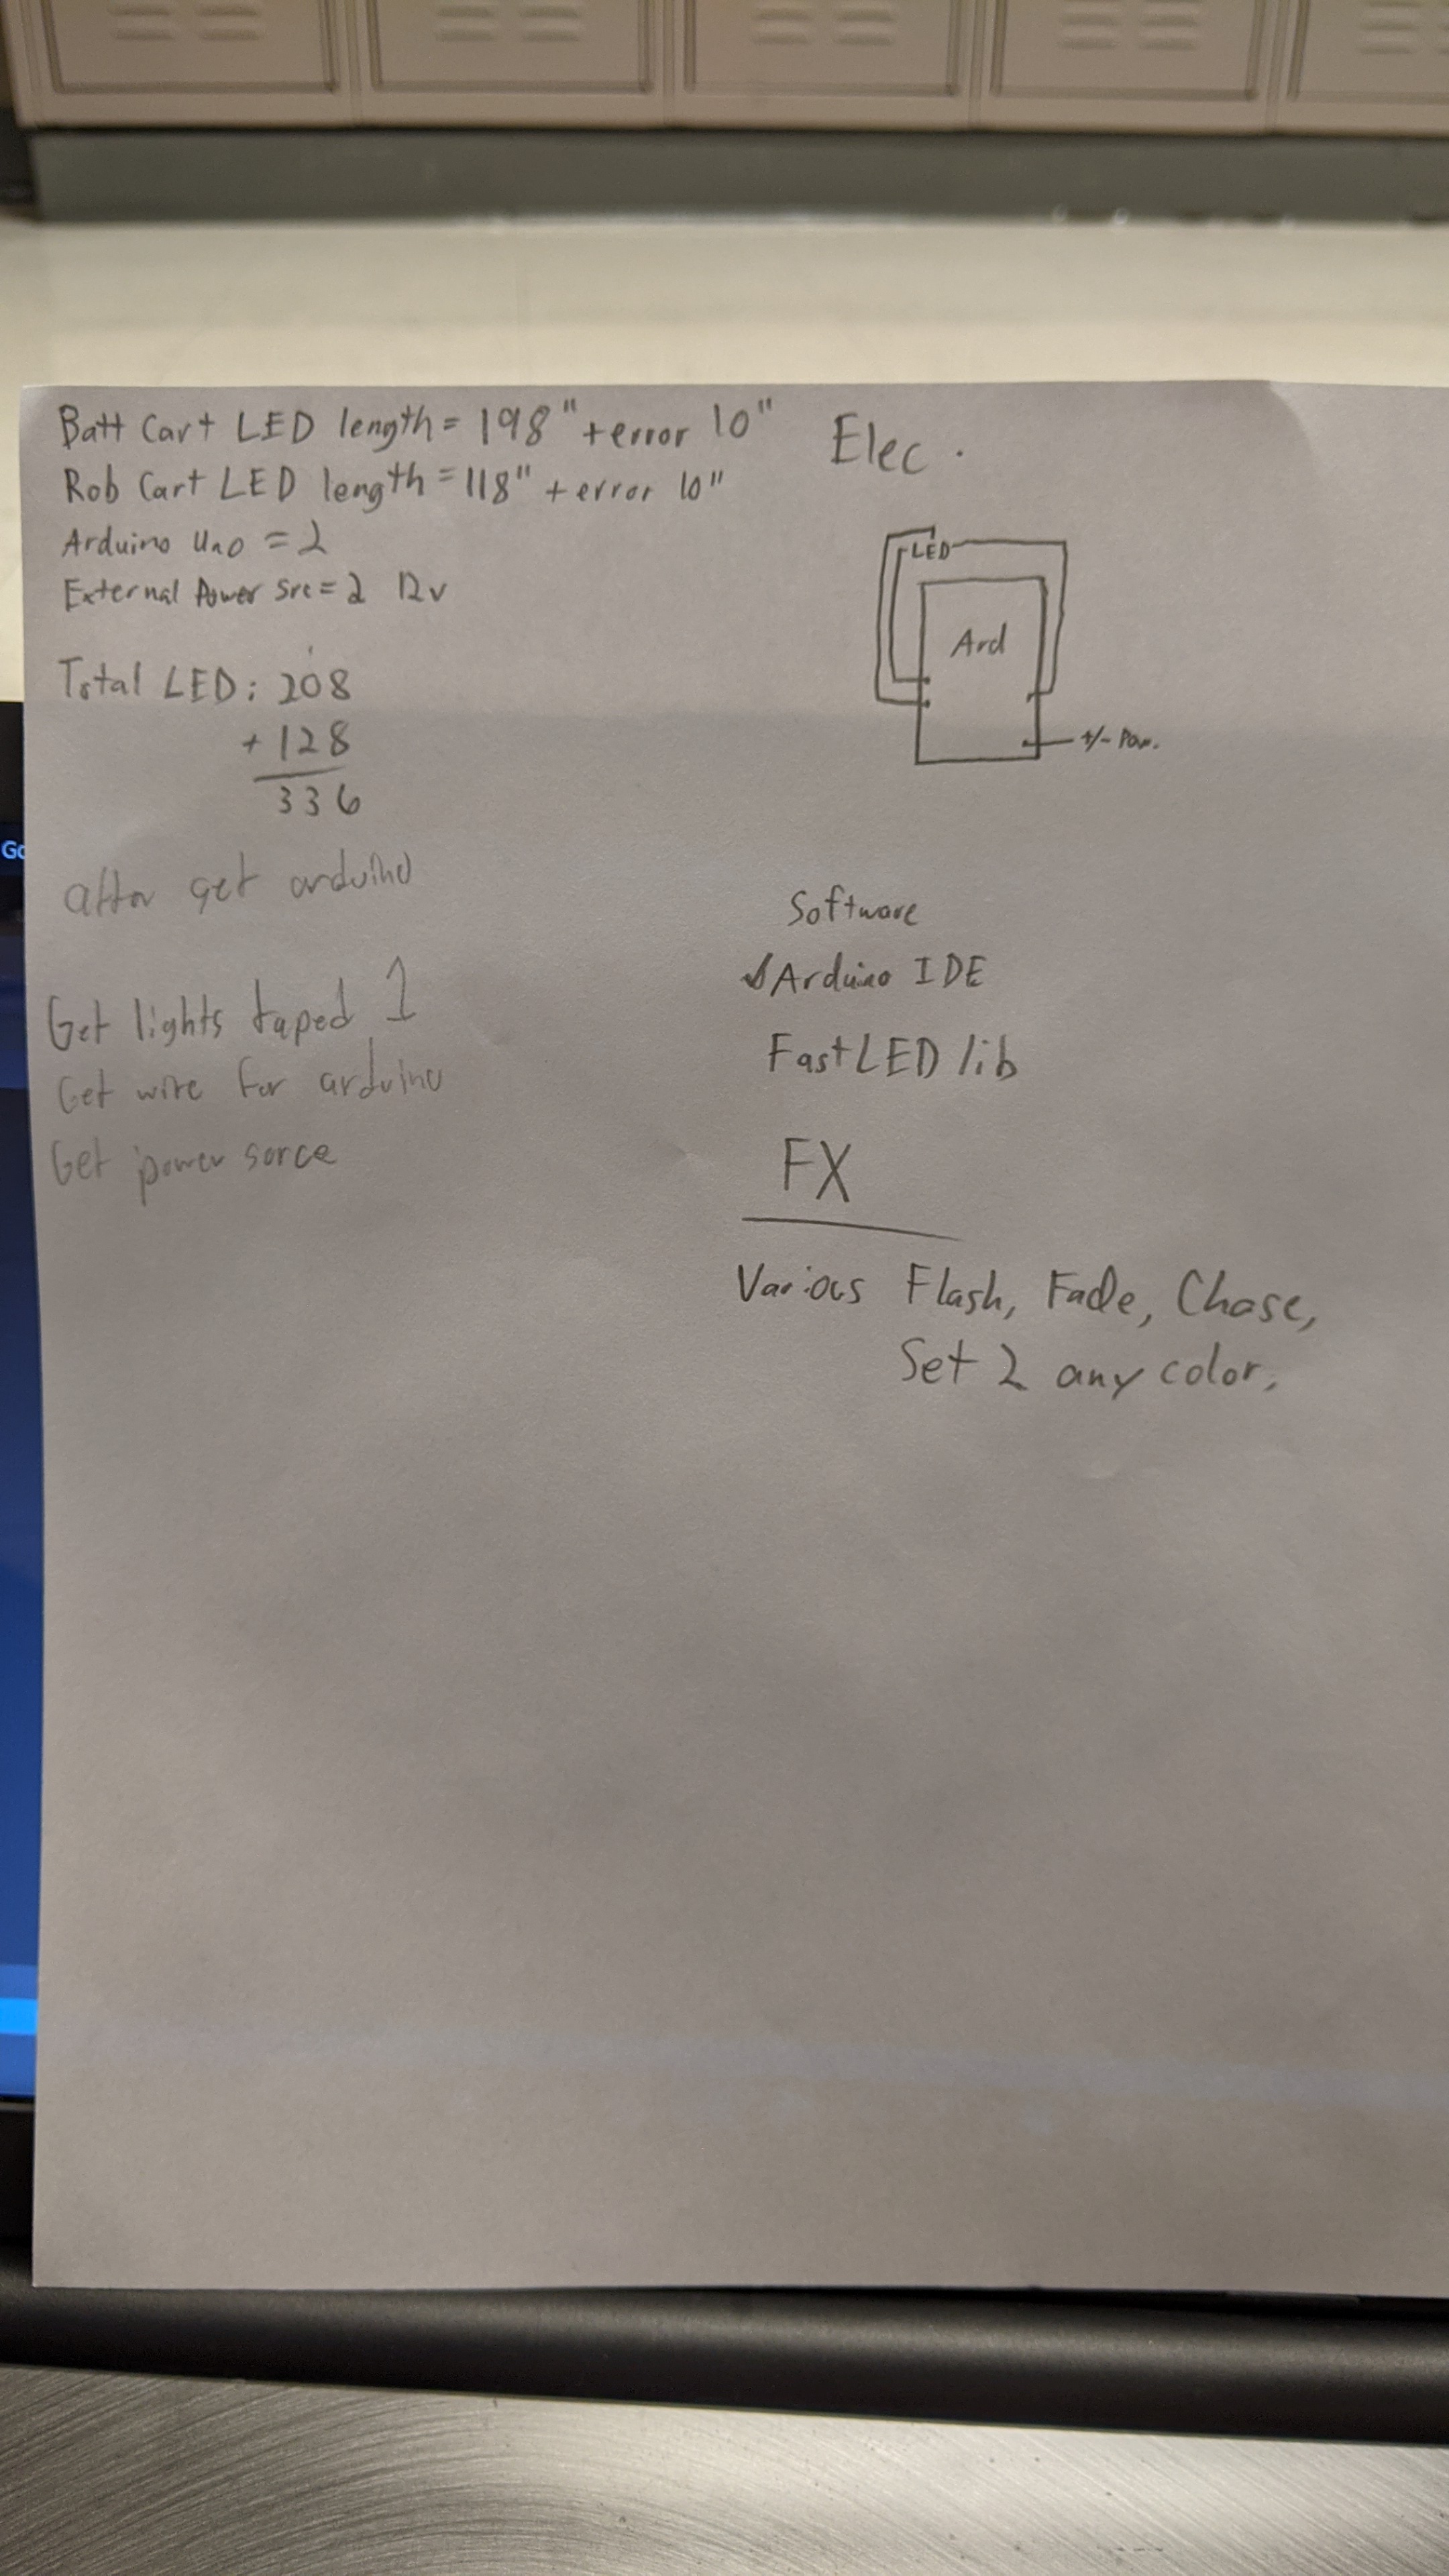 Batt Cart LED length = 198" + error 10"
Rob Cart LED length = 118" + error 10"
Arduino Uno = 2
External Power Src = 2 12v
Total LED: 208
+ 128
336
after get arduino
Get lights taped 1
Get wire for arduino
Get power sorce
Elec.
LED
Ard
+/- Pow.
Software
✓Arduino IDE
FastLED lib
FX
Various Flash, Fade, Chase,
Set 2 any color.